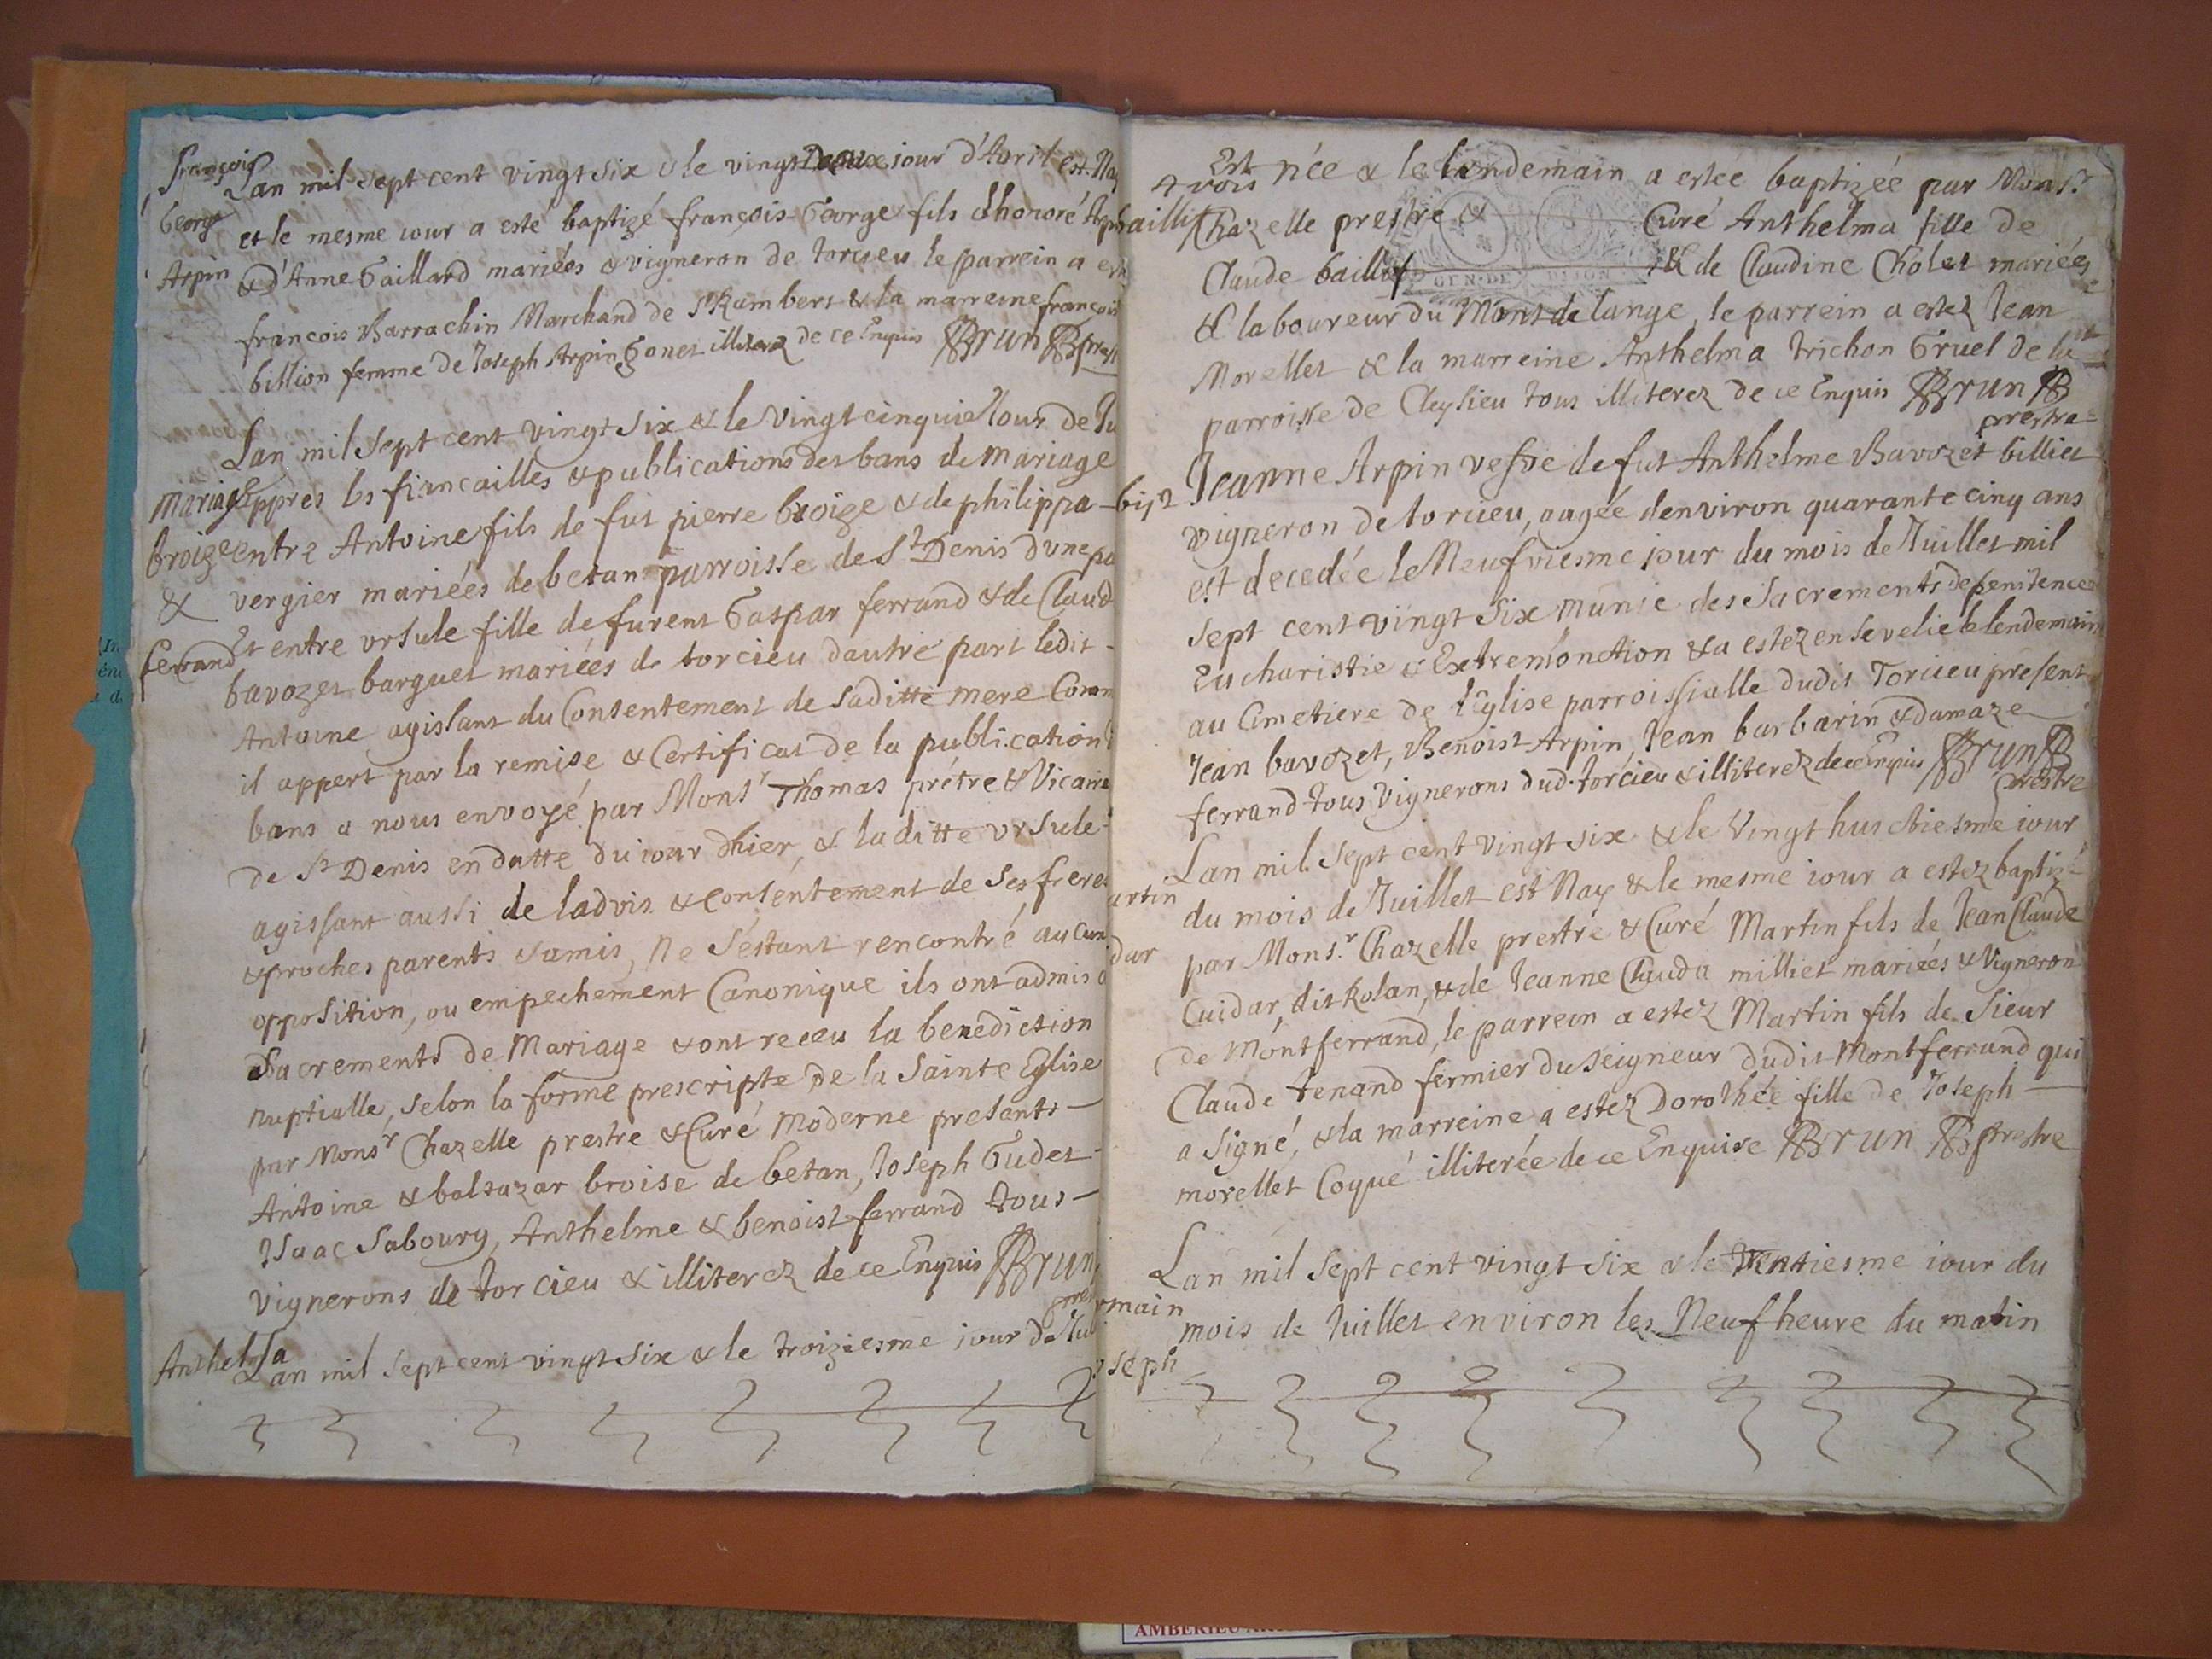 françois
George
Arpin
Lan mil sept cent vingt six & le vingt Deuxe iour d'Avril est Nay
et le mesme iour a esté baptizé françois George fils d'honoré Arpin
& d'Anne Gaillard mariées & vigneron de torcieu le parrein a esté
francois Barrachin Marchand de St Rambert & la marreine françoise
billion femme de Joseph Arpin Gonet illiterez de ce Enquis Brun prest
Lan mil sept cent vingt six & le vingt cinquie Iour de Ju
mariage
appres les fiancailles & publications des bans de mariage
broize
entre Antoine fils de fut pierre broize & de philippa
&
vergier mariées de betan parroisse de St Denis dune pa
ferrand
Et entre ursule fille de furent Gaspar ferrand & de Claud
bavozet barguet mariées de torcieu dautre part ledit
Antoine agissant du Consentement de saditte mere Comm
il appert par la remise & Certificat de la publication
bans a nous envoyé par Monsr Thomas prétre & Vicaire
de St Denis en datte du iour dhier, & laditte ursule
agissant aussi de ladvis & consentement de ses freres
& proches parents & amis, Ne s'estant rencontré aucun
opposition, ou empechement Canonique ils ont admis
Sacrements de Mariage & ont receu la benediction
nuptialle, selon la forme prescripte de la sainte Eglise
par Monsr Chazelle prestre & Curé Moderne presents
Antoine & baltazar broise de betan, Joseph Gudet
Isaac Saboury, Anthelme & benoist ferrand tous
vignerons de torcieu & illiterez de ce Enquis Brun
Anthelma
Lan mil sept cent vingt six & le troiziesme iour de Jui
Est née & le lendemain a estée baptizée par Monsr
baillif
Chazelle prestre & Curé Anthelma fille de
Claude baillif & de Claudine Cholet mariées
GEN. DE DIJON
& laboureur du Mont de lange, le parrein a estez Jean
Morellet & la marreine Anthelma trichon Gruel de la
parroisse de Cleysieu tous illiterez de ce Enquis Brun
prestre
Jeanne Arpin vefve de fut Anthelme Bavozet billiet
vigneron de torcieu, aagée denviron quarante cinq ans
est decedée le Neufviesme jour du mois de Juillet mil
sept cent vingt six munie des Sacrements de penitence
Eucharistie & Extremonction & a estez ensevelie le lendemain
au Cimetiere de l'Eglise parroissialle dudit Torcieu present
Jean bavozet, Benoist Arpin, Jean barbarin & damaze
ferrand tous vignerons dud. torcieu & illiterez de ce Enquis Brun
prestre
Lan mil sept cent vingt six & le vingt huictiesme iour
artin
du mois de Juillet est Nay & le mesme iour a estez baptizé
dar
par Monsr Chazelle prestre & Curé Martin fils de Jean Claude
Cuidar, dit Rolan, & de Jeanne Clauda milliet mariées & vigneron
de Montferrand, le parrein a estez Martin fils de Sieur
Claude tenand fermier du seigneur dudit Montferrand qui
a signé, & la marreine a estez Dorothée fille de Joseph
morellet Coqué illiterée de ce Enquise Brun prestre
Lan mil sept cent vingt six & le trentiesme iour du
rmain
mois de Juillet environ les Neuf heure du matin
oseph
AMBERIEU